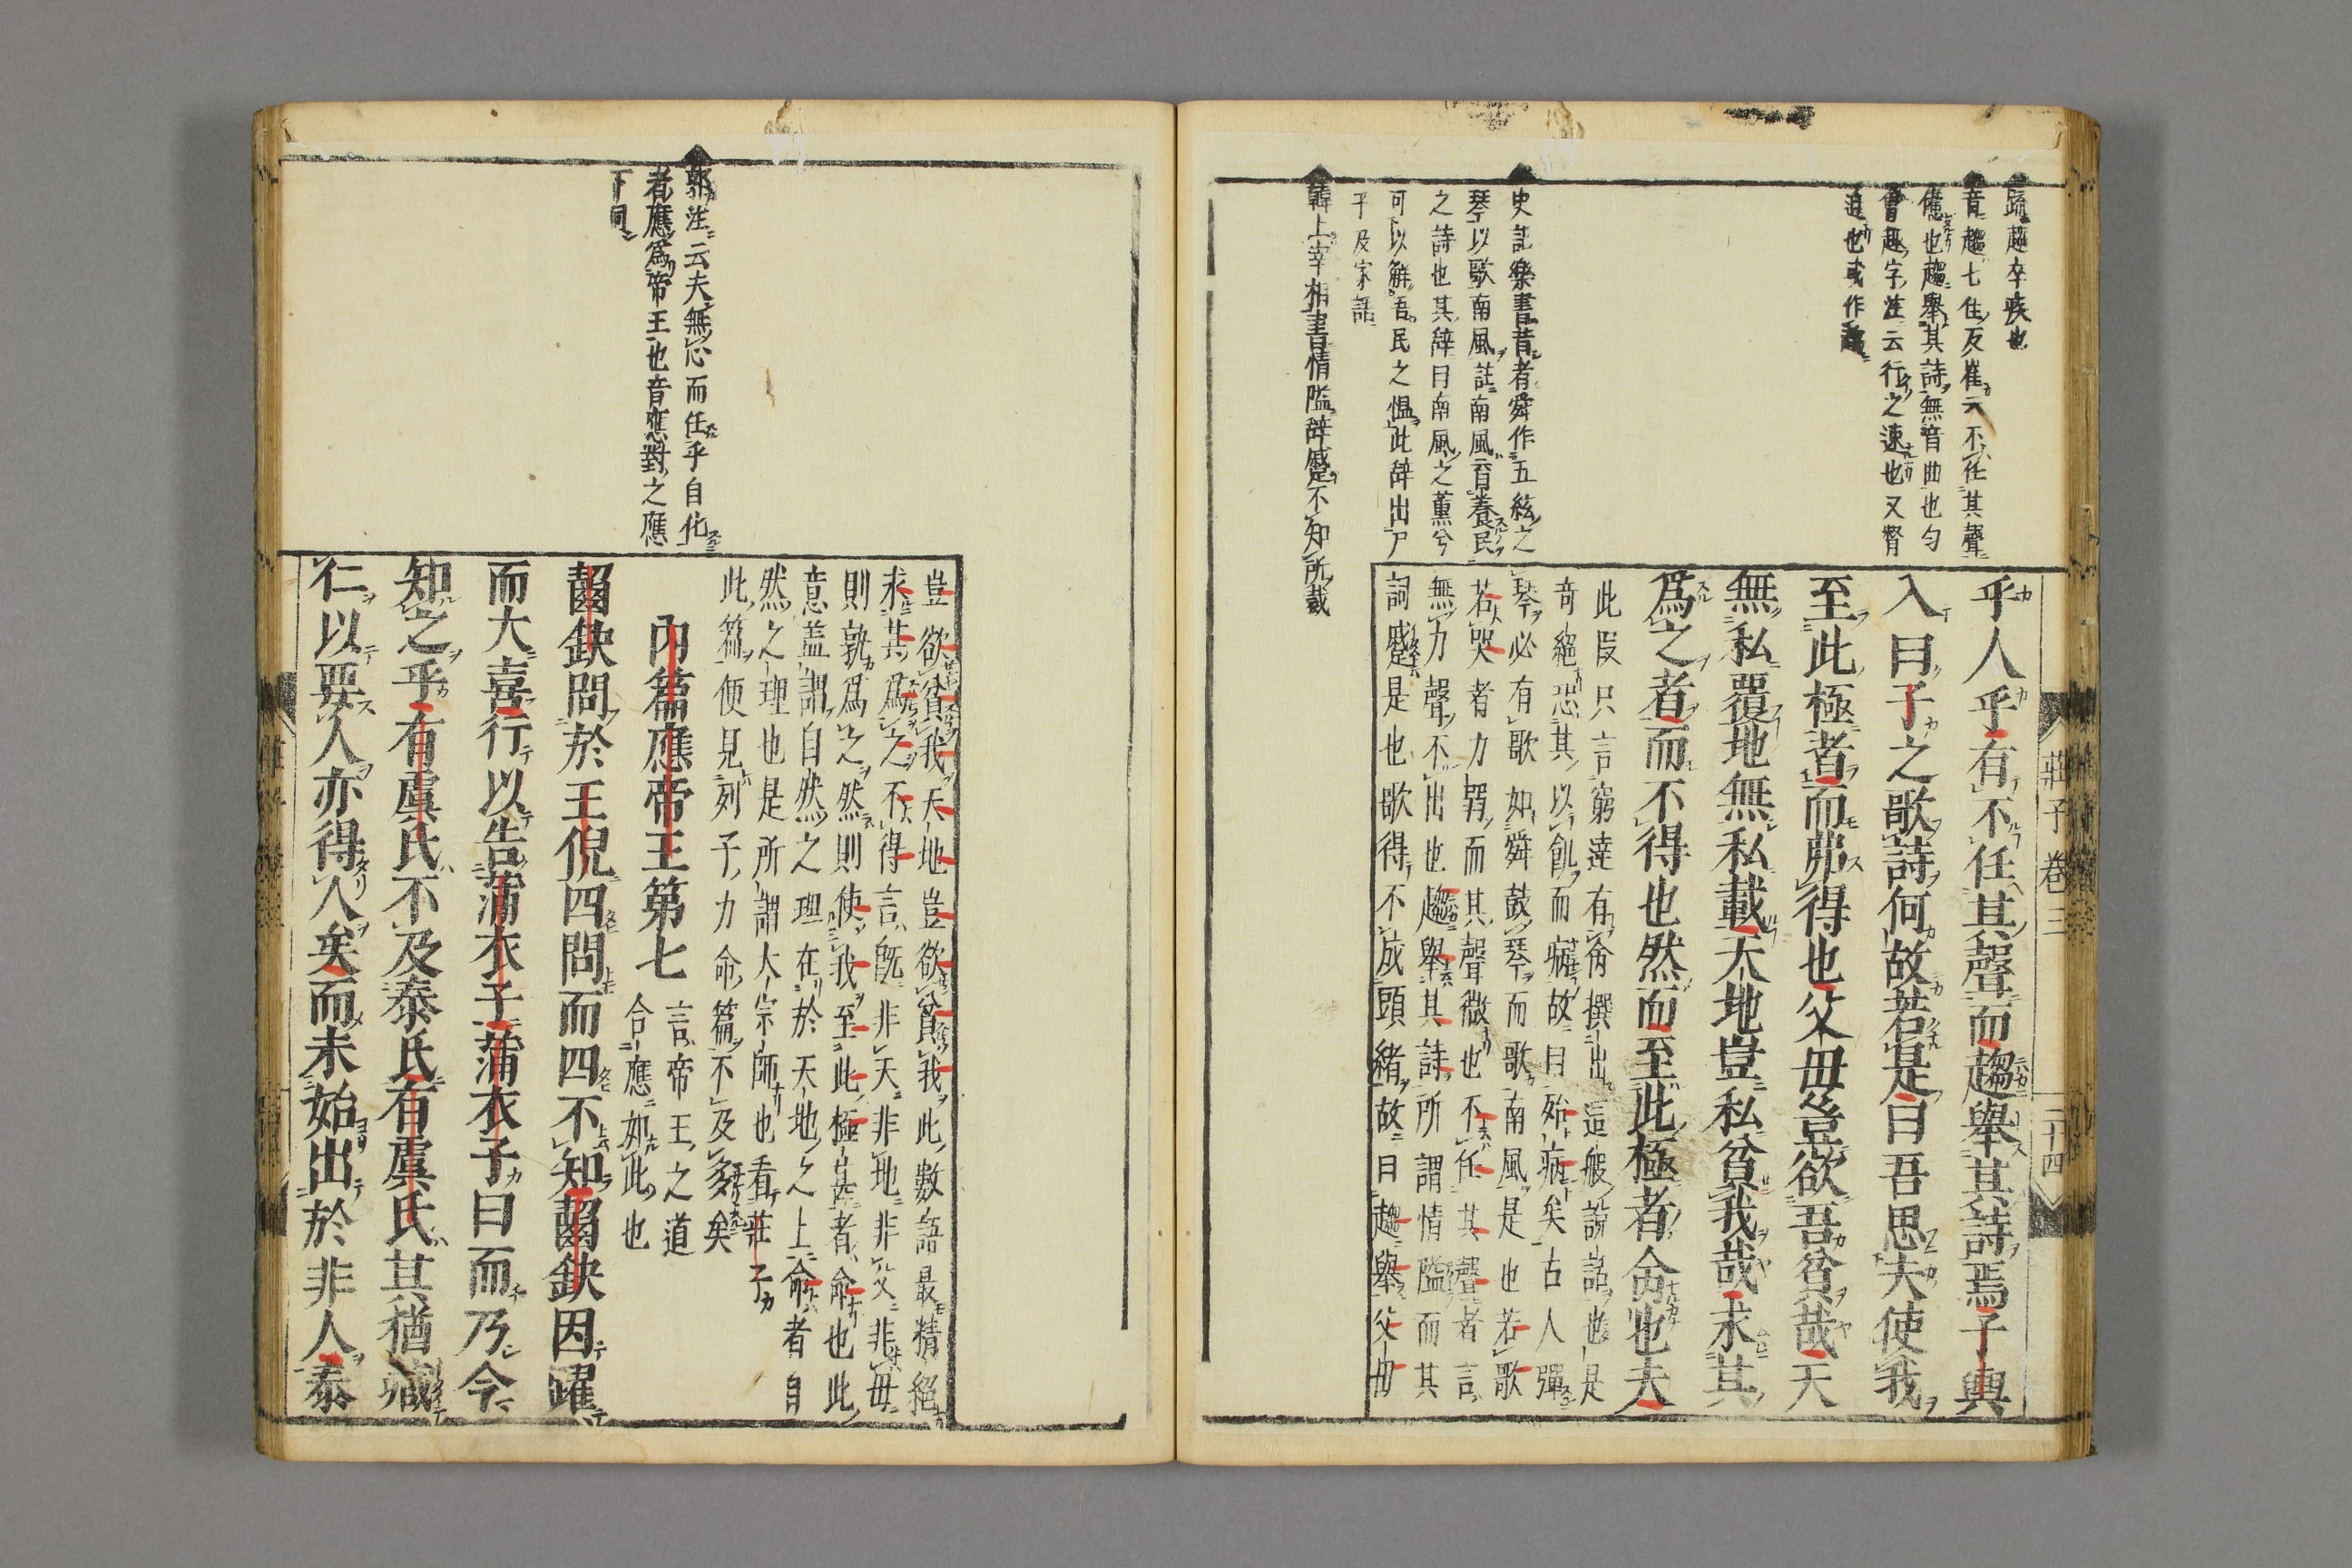 疏趨卒疾也
音趨七住反崔云不任其聲
憊也趨舉其詩無音曲也勻
會趣字注云行之速也又督
迫也或作
史記樂書昔者舜作五絃之
琴以歌南風註南風育養民
之詩也其辭曰南風之薰兮
可以解吾民之慍此辭出尸
子及家語
韓上宰相書情隘辞蹙不知所裁
乎人乎有不任其聲而趨舉其詩焉子輿
入曰子之歌詩何故若是曰吾思夫使我
至此極者而弗得也父母豈欲吾貧哉天
無私覆地無私載天地豈私貧我哉求其
爲之者而不得也然而至此極者命也夫
此段只言窮達有命撰出這般說話也是
奇絕恐其以飢而病故曰殆病矣古人彈
琴必有歌如舜鼓琴而歌南風是也若歌
若哭者力弱而其聲微也不任其聲者言
無力聲不出也趨舉其詩所謂情隘而其
詞蹙是也歌得不成頭緒故曰趨舉父母
莊子卷三
二十四
郭注云夫無心而任乎自化
者應爲帝王也音應對之應
下同
豈欲貧我天地豈欲貧我此數語最精絕
求其爲之不得言既非天非地非父非母
則孰爲之然則使我至此極甚者命也此
意盖謂自然之理在於天地之上命者自
然之理也是所謂大宗師也看莊子
此篇便見列子力命篇不及多矣
內篇應帝王第七
言帝王之道
合應如此也
齧缺問於王倪四問而四不知齧缺因躍
而大喜行以告蒲衣子蒲衣子曰而乃今
知之乎有虞氏不及泰氏有虞氏其猶藏
仁以要人亦得人矣而未始出於非人泰